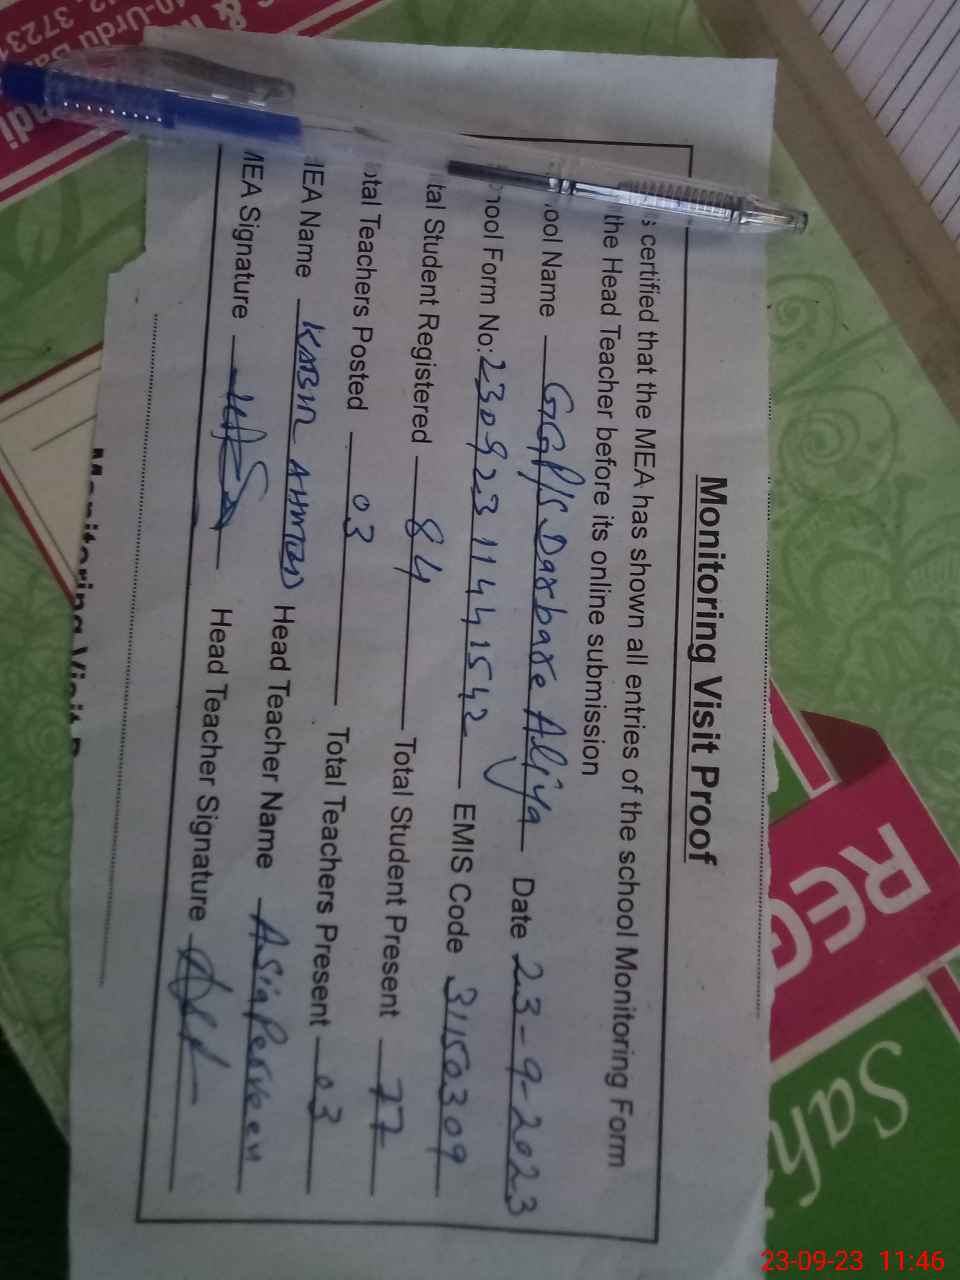 Monitoring Visit Proof
s certified that the MEA has shown all entries of the school Monitoring Form
the Head Teacher before its online submission
ool Name GGP/S Daxbaxe Aliya Date 23-9-2023
hool Form No: 230923114441542 EMIS Code 31150309
tal Student Registered 84 Total Student Present 77
otal Teachers Posted 03 Total Teachers Present 03
MEA Name KABIR AHMAD Head Teacher Name Asia Perveen
MEA Signature Head Teacher Signature
Monitoring Visit P
REG
Sah
0-Urdu Ba
37231
adi
23-09-23 11:46